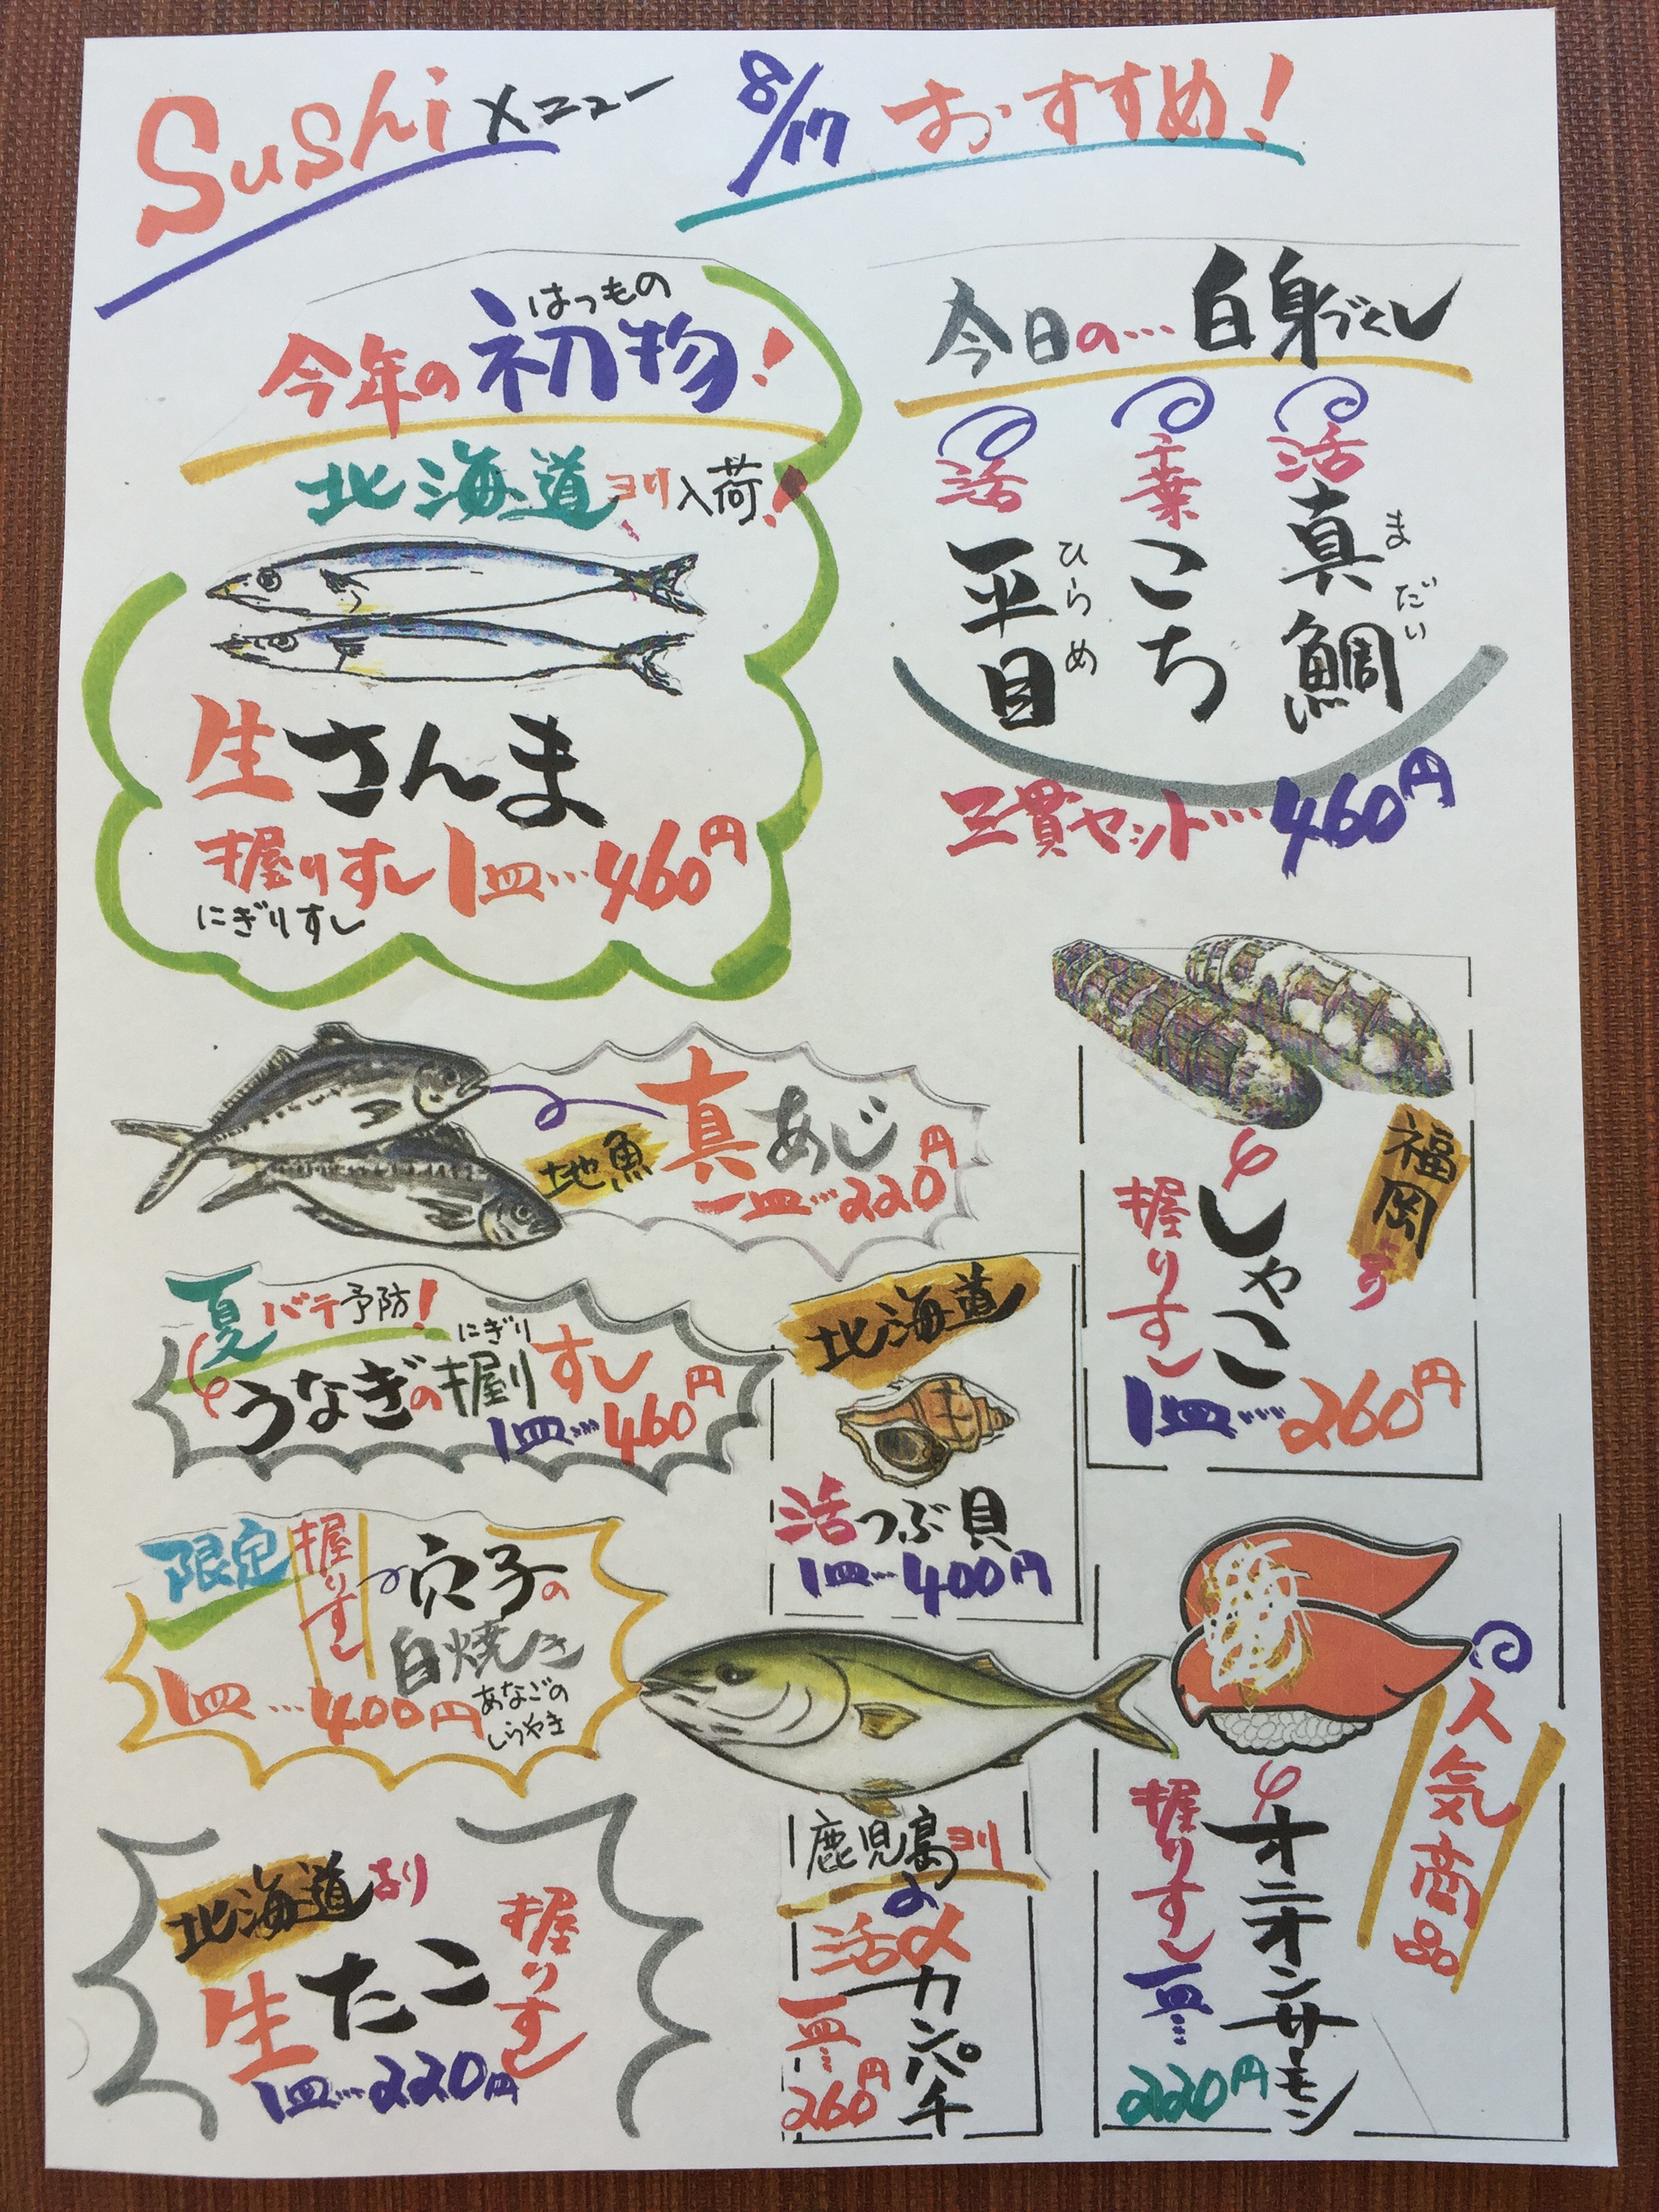 Sushi メニュー 8/17 おすすめ!
はつもの
今年の初物!
北海道ヨリ入荷!
生さんま
握りすし1皿…460円
にぎりすし
今日の…白身づくし
活真鯛
まだい
千葉こち
活平目
ひらめ
三貫セット…460円
地魚
真あじ
一皿…220円
福岡より
しゃこ
握りすし
1皿…260円
夏バテ予防!
にぎり
うなぎの握りすし
1皿…460円
北海道
活つぶ貝
1皿…400円
限定
握りすし
穴子の
白焼き
あなごの
しらやき
1皿…400円
人気商品
オニオンサーモン
握りすし一皿…
220円
鹿児島ヨリの
活〆
カンパチ
一皿…
260円
北海道より
生たこ
握りすし
1皿…220円